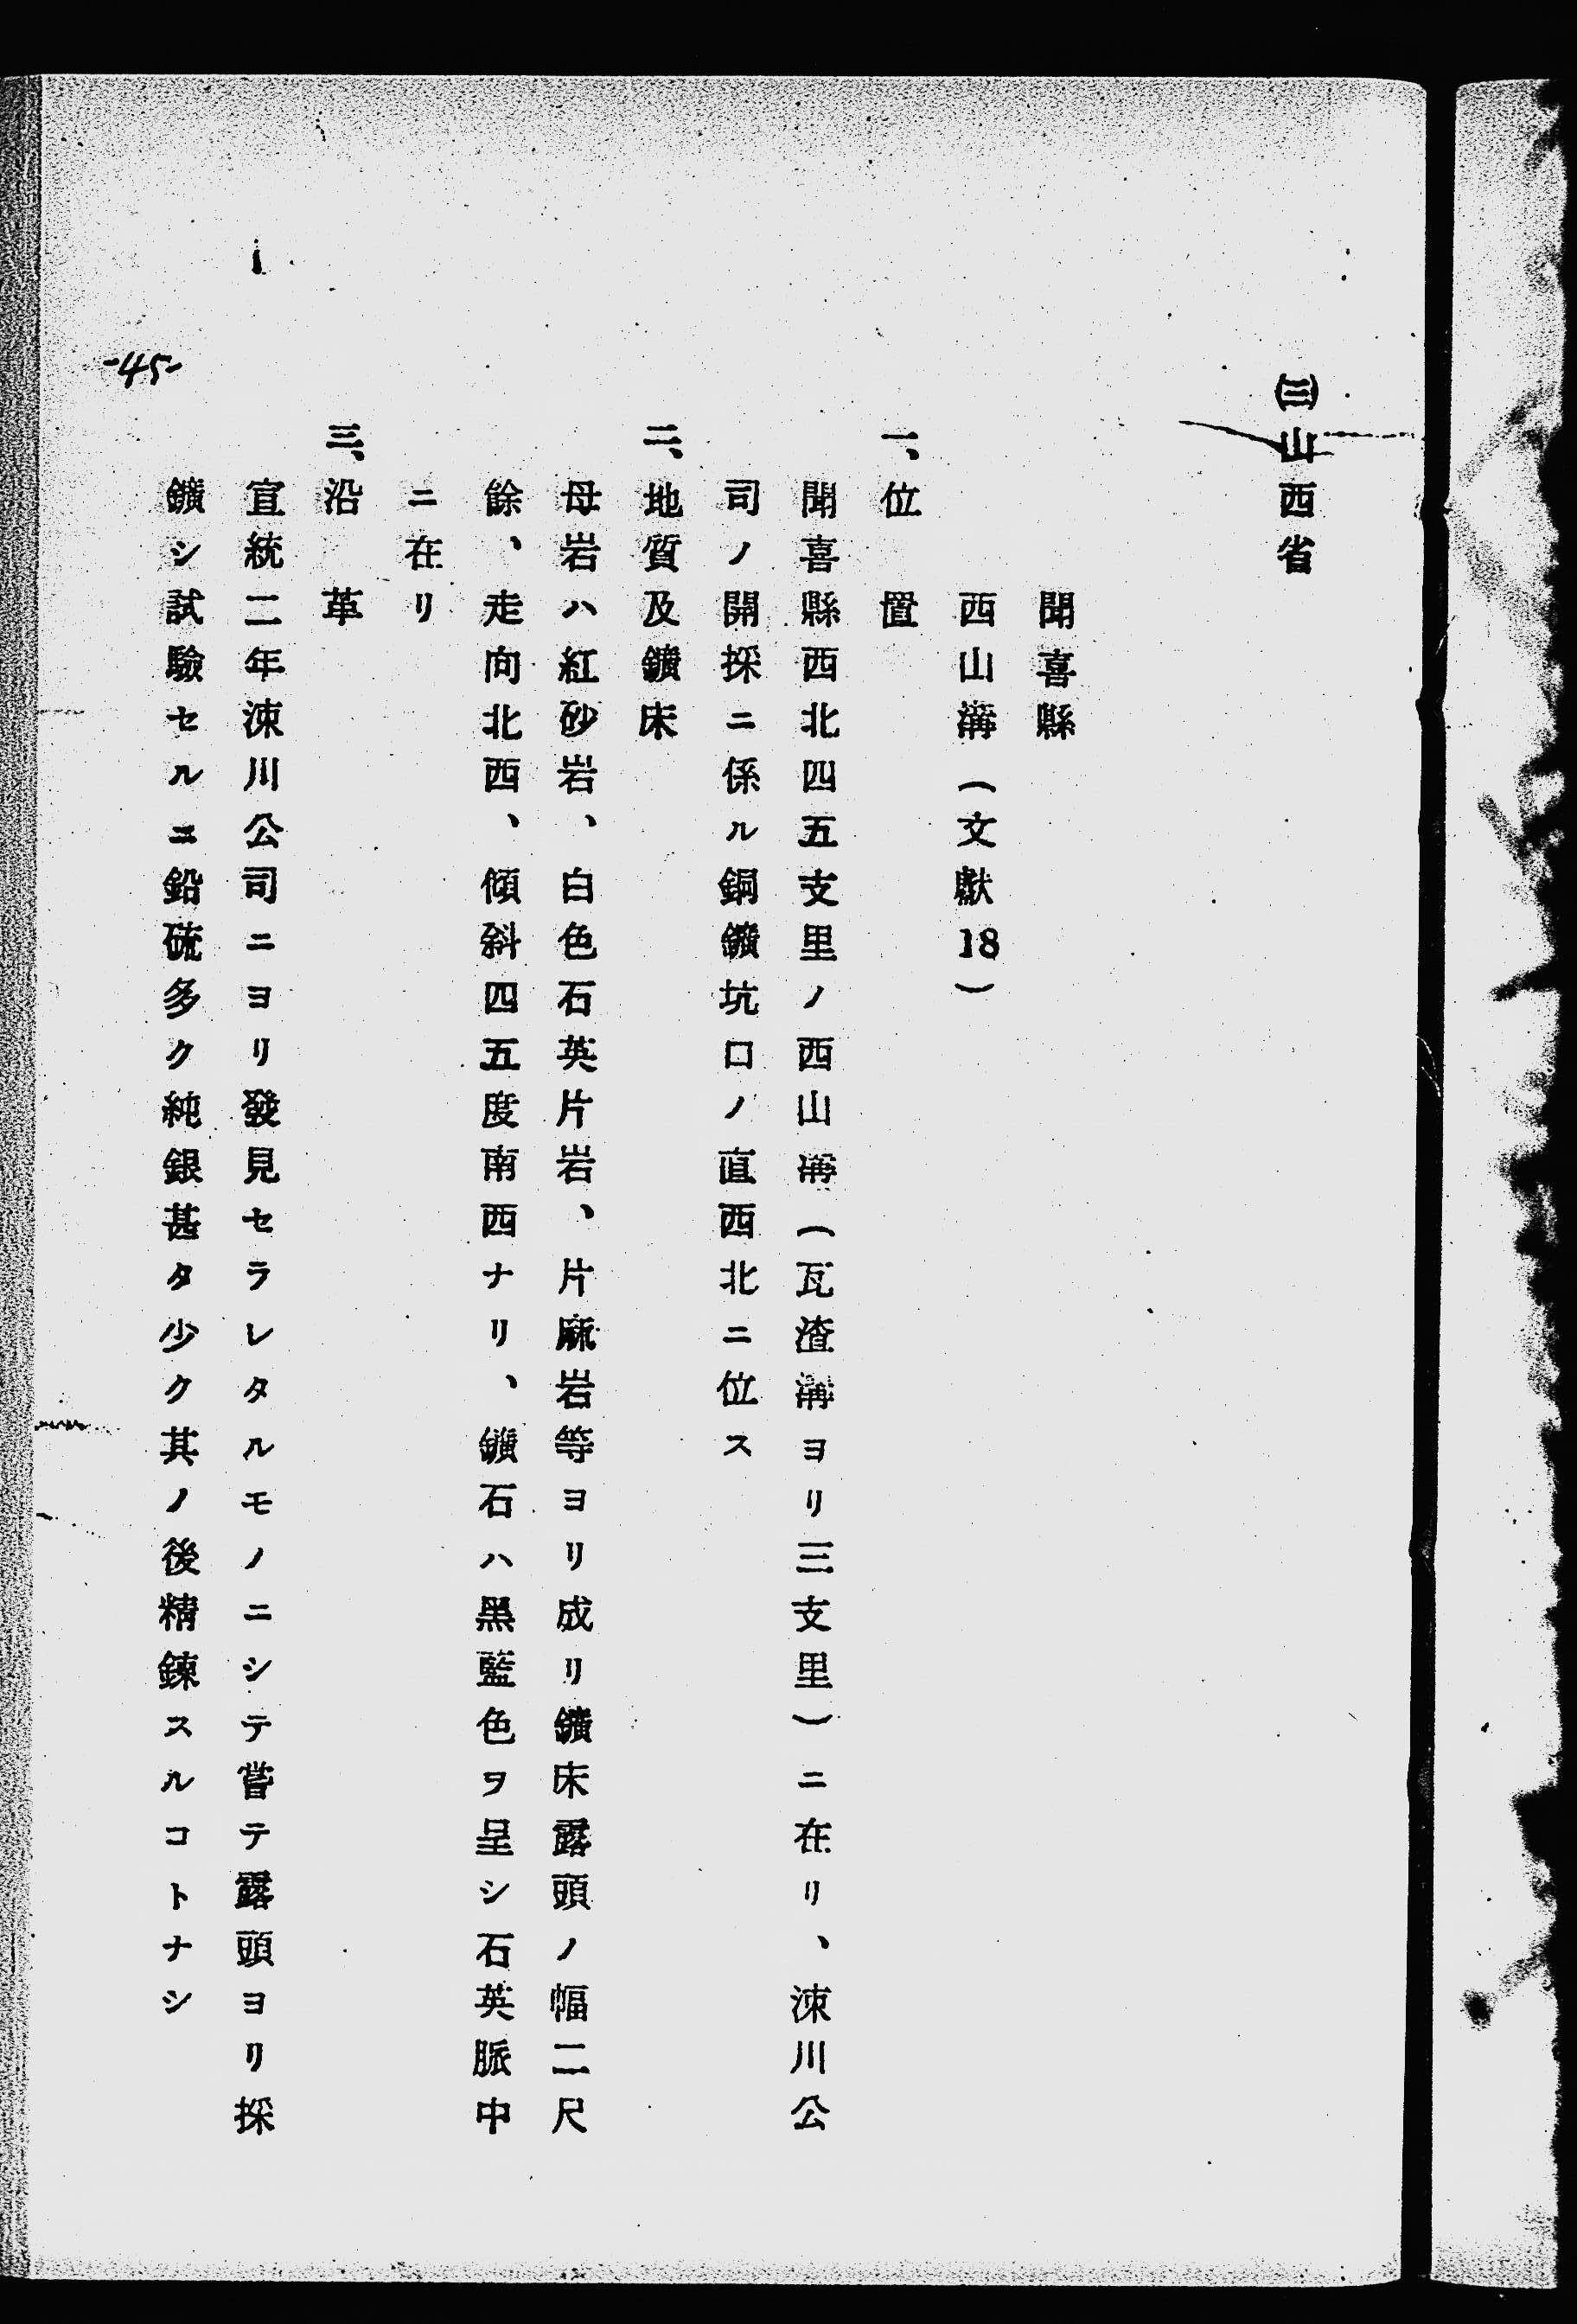 ㈢山西省
聞喜縣
西山溝（文獻18）
一、位置
聞喜縣西北四五支里ノ西山溝（瓦渣溝ヨリ三支里）ニ在リ、涑川公
司ノ開採ニ係ル銅鑛坑口ノ直西北ニ位ス
二、地質及鑛床
母岩ハ紅砂岩、白色石英片岩、片麻岩等ヨリ成リ鑛床露頭ノ幅二尺
餘、走向北西、傾斜四五度南西ナリ、鑛石ハ黑藍色ヲ呈シ石英脈中
ニ在リ
三、沿革
宣統二年涑川公司ニヨリ發見セラレタルモノニシテ嘗テ露頭ヨリ採
鑛シ試驗セルニ鉛硫多ク純銀甚タ少ク其ノ後精鍊スルコトナシ
-45-